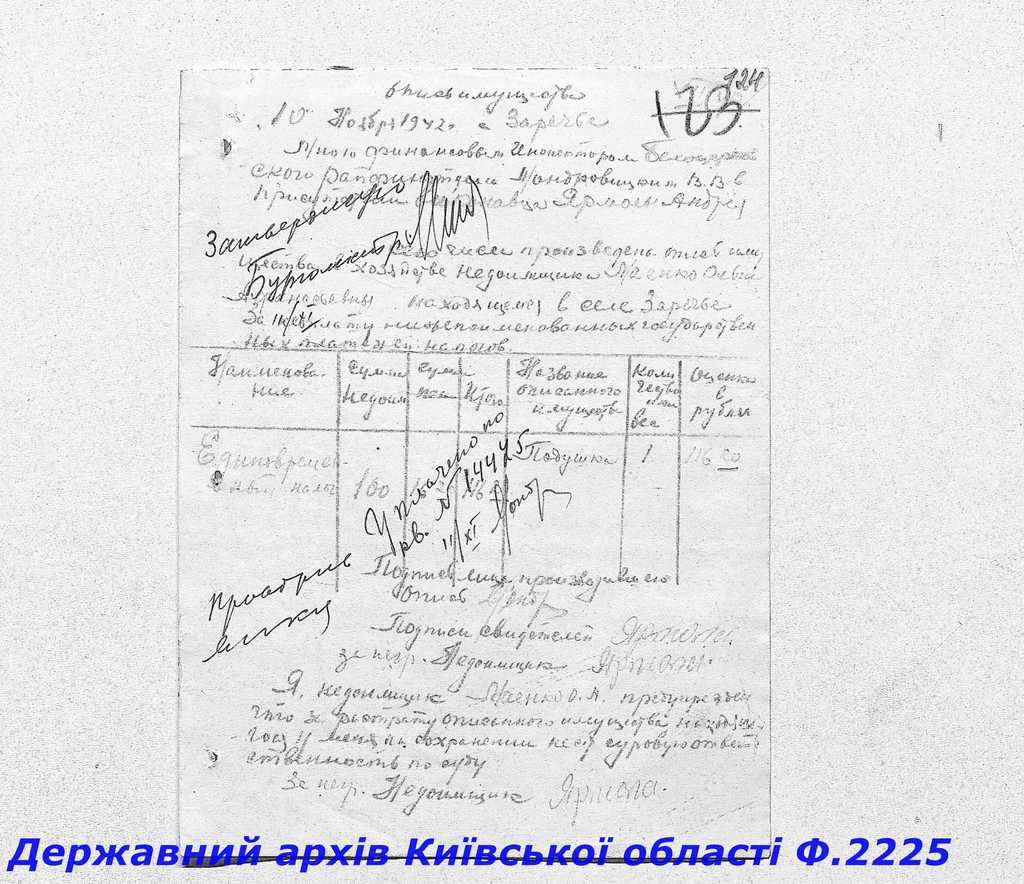 124
123
опись имущества
10 Ноября 1942г с Заречье
Мною финансовым Инспектором Белоцерков
ского райфинотдела Мондровицким В.В в
присутствии Ярмолы Андрея
Затверджую
Бургомістр
сего числа произведена опись иму
щества в хозяйстве недоимщика
находящемся в селе Заречье
11/XI
За неуплату нижепоименованных государствен
ных платежей налогов.
Наименова-
ние
Сумма
Недоим
Сумма
пени
Итого
Название
описанного
имущества
Коли
чество
или
вес
Оценка
в
рублях
Единовремен-
ный налог 100 116 Подушка 1 116 00
Уплачено по
кв. № 14425
11/XI
Подпись лица производившего
Опись
Подписи свидетелей Ярмола.
за негр. Недоимщик Ярмола.
Я, недоимщик О.А. предупрежден
что за растрату описанного имущества находяще
гося у меня на сохранении несу суровую ответ
ственность по суду
За негр. Недоимщик Ярмола.
Державний архів Київської області Ф.2225